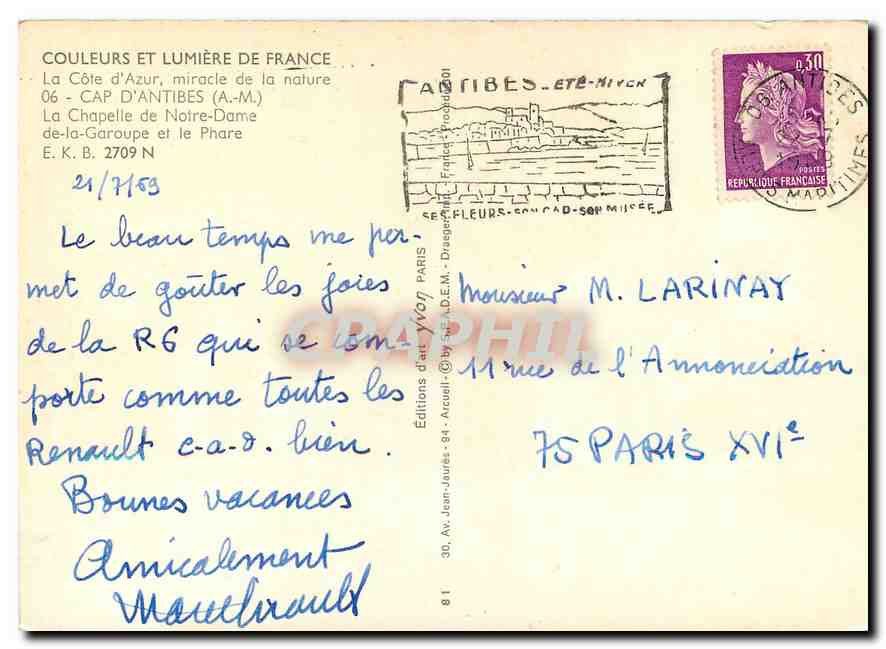 COULEURS ET LUMIÈRE DE FRANCE
La Côte d'Azur, miracle de la nature
06 - CAP D'ANTIBES (A.-M.)
La Chapelle de Notre-Dame
de-la-Garoupe et le Phare
E. K. B. 2709 N
21/7/69
Le beau temps me per-
met de goûter les joies
de la R6 qui se com-
porte comme toutes les
Renault c-a-d. bien.
Bonnes vacances
Amicalement
81
Éditions d'art yvon PARIS
30, Av. Jean-Jaurès - 94 - Arcueil - © by S.P.A.D.E.M. - Draeger Imp. France - Procédé 301
ANTIBES - ETE-HIVER
SES FLEURS-SON CAP-SON MUSÉE
0,30
POSTES
REPUBLIQUE FRANÇAISE
06 ANTIBES
MARITIMES
Monsieur M. LARINAY
11 rue de l'Annonciation
75 PARIS XVIe
CPAPHIL